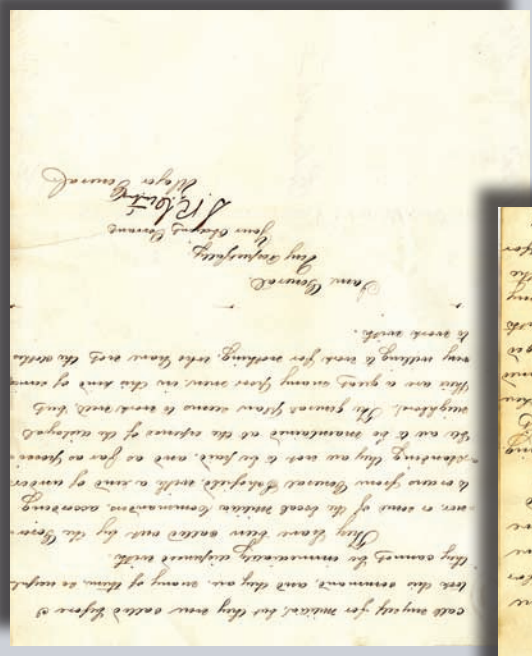 call myself for militia, but they were called before I
took this command, and they are, many of them, so useful
they cannot be immediately dispensed with.
They have been called out by the Gover
nor, or some of the local Militia Commanders, according
to orders from General Schofield, with a kind of under
standing, they are not to be paid, and as far as possi
ble are to be maintained at the expense of the disloyal
neighbors. The general plan seems to work well, but
there are a great many poor men in this kind of service
very willing to work for nothing, who have not the clothes
to work with.
I am, General,
Very respectfully,
Your Obedient Servant
S. R. Curtis
Major General